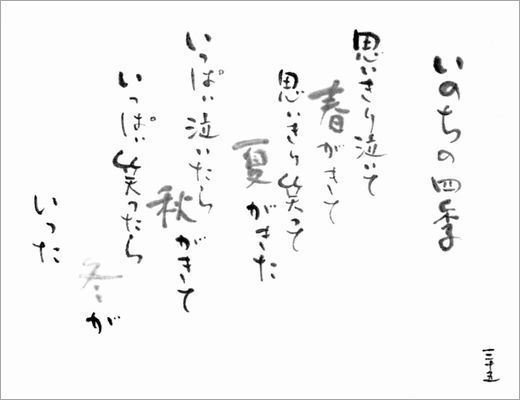 いのちの四季
思いきり泣いて
春がきて
思いきり笑って
夏がきた
いっぱい泣いたら
秋がきて
いっぱい笑ったら
冬が
いった
三十五